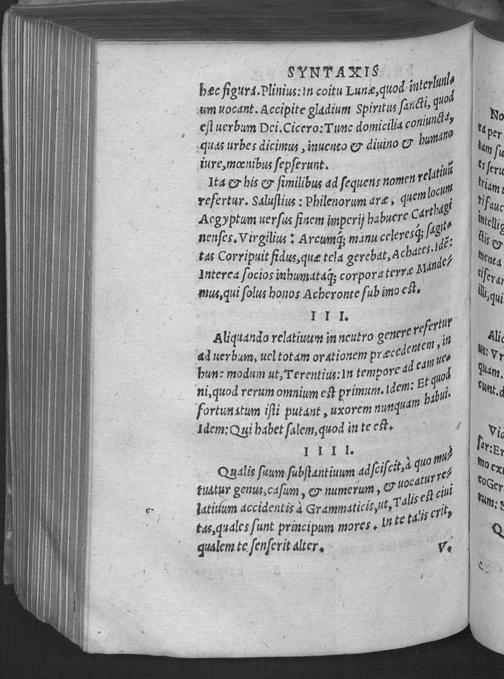 SYNTAXIS
hæc figura. Plinius: In coitu Lunæ, quod interluni-
um uocant. Accipite gladium Spiritus sancti, quod
est uerbum Dei. Cicero: Tunc domicilia coniuncta,
quas urbes dicimus, inuento & diuino & humano
iure, mœnibus sepserunt.
Ita & his & similibus ad sequens nomen relatiuũ
refertur. Salustius: Philenorum aræ, quem locum
Aegyptum uersus finem imperij habuere Carthagi
nenses. Virgilius: Arcumq́; manu celeresq́; sagit-
tas Corripuit fidus, quæ tela gerebat, Achates. Idẽ:
Interea socios inhumataq́; corpora terræ Mande-
mus, qui solus honos Acheronte sub imo est.
III.
Aliquando relatiuum in neutro genere refertur
ad uerbum, uel totam orationem præcedentem, in
hunc modum ut, Terentius: In tempore ad eam ue-
ni, quod rerum omnium est primum. Idem: Et quod
fortunatum isti putant, uxorem nunquam habui.
Idem: Qui habet salem, quod in te est.
IIII.
Qualis suum substantiuum adsciscit, à quo mu-
tuatur genus, casum, & numerum, & uocatur re-
latiuum accidentis à Grammaticis, ut, Talis est ciui
tas, quales sunt principum mores. In te talis erit,
qualem te senserit alter.
V.